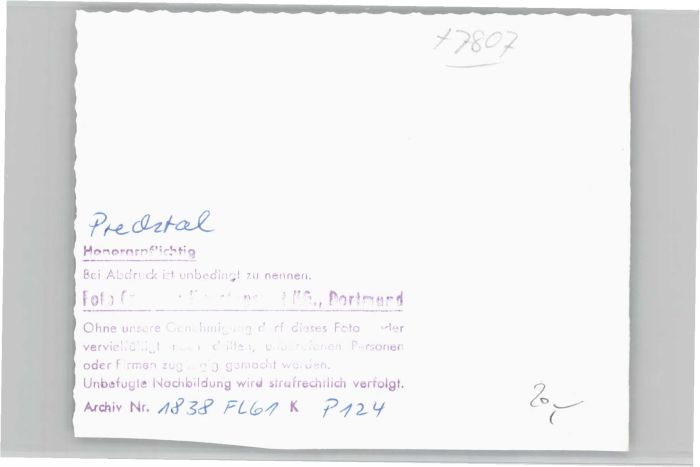 +7807
Predstal
Honorarpflichtig
Bei Abdruck ist unbedingt zu nennen.
Foto KG., Dortmund
Ohne unsere Genehmigung darf dieses Foto weder
vervielfältigt noch dritten, unberufenen Personen
oder Firmen zugängig gemacht werden.
Unbefugte Nachbildung wird strafrechtlich verfolgt.
Archiv Nr. 1838 FL61 K P124
20,-